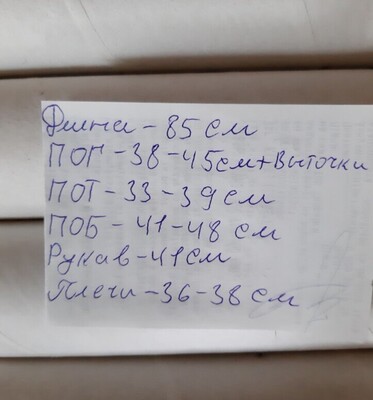 Длина - 85 см
ПОГ - 38 - 45 см + Выточки
ПОТ - 33 - 39 см
ПОБ - 41 - 48 см
Рукав - 41 см
Плечи - 36 - 38 см